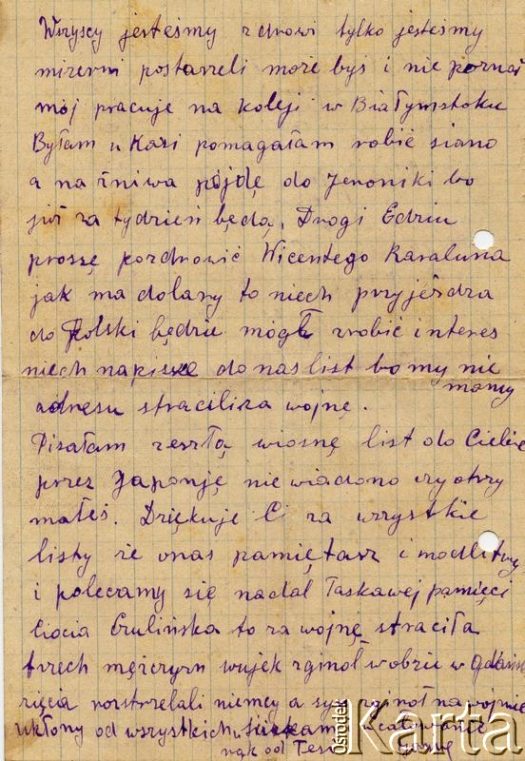 Wszyscy jesteśmy zdrowi tylko jesteśmy
mizerni postarzeli może byś i nie poznał
mój pracuje na koleji w Białymstoku
Byłam u Kazi pomagałam robić siano
a na żniwa pójdę do Jenoniki bo
już za tydzień będą. Drogi Edziu
proszę pozdrowić Wicentego Karaluna
jak ma dolary to niech przyjeżdza
do Polski będzie mógł zrobic interes
niech napisze do nas list bo my nie
mamy
adresu stracili za wojnę.
Pisałam zeszłą wiosnę list do Ciebie
przez Japonję nie wiadono czy otrzy
małeś. Dziękuje Ci za wszystkie
listy że onas pamiętasz i modlitwy
i polecamy się nadal łaskawej pamięci
Ciocia Czulińska to za wojnę straciła
trzech męzczyzn wujek zginoł wobzie w Gdańsk
zięcia rozstrzelali niemcy a syn zginoł na wojnie
ukłony od wszystkich
Ośrodek
Karta